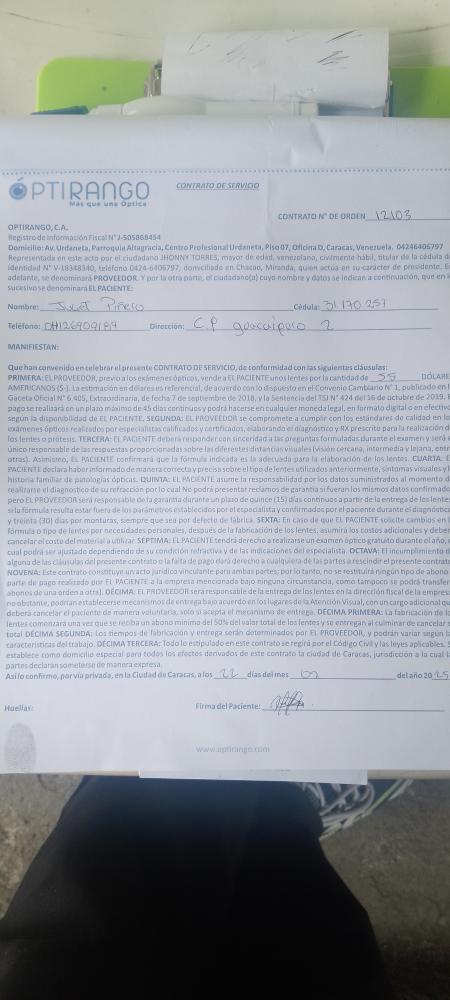 ÓPTIRANGO
Más que una Óptica
CONTRATO DE SERVICIO
CONTRATO N° DE ORDEN 12103
OPTIRANGO, C.A.
Registro de Información Fiscal N° J-505868454
Domicilio: Av. Urdaneta, Parroquia Altagracia, Centro Profesional Urdaneta, Piso 07, Oficina D, Caracas, Venezuela. 04246406797
Representada en este acto por el ciudadano JHONNY TORRES, mayor de edad, venezolano, civilmente hábil, titular de la cédula de
identidad N° V-18348340, teléfono 0424-6406797, domiciliado en Chacao, Miranda, quien actúa en su carácter de presidente. E
adelante, se denominará PROVEEDOR. Y por la otra parte, el ciudadano(a) cuyo nombre y datos se indican a continuación, que en lo
sucesivo se denominará EL PACIENTE:
Nombre: Piñero Cédula: 31.170.257
Teléfono: Dirección: C.P guaicaipuro 2
MANIFIESTAN:
Que han convenido en celebrar el presente CONTRATO DE SERVICIO, de conformidad con las siguientes cláusulas:
PRIMERA: EL PROVEEDOR, previo a los exámenes ópticos, vende a EL PACIENTE unos lentes por la cantidad de 55 DÓLARE
AMERICANOS ($-). La estimación en dólares es referencial, de acuerdo con lo dispuesto en el Convenio Cambiario N° 1, publicado en l
Gaceta Oficial N° 6.405, Extraordinaria, de fecha 7 de septiembre de 2018, y la Sentencia del TSJ N° 424 del 16 de octubre de 2019. E
pago se realizará en un plazo máximo de 45 días continuos y podrá hacerse en cualquier moneda legal, en formato digital o en efectivo
según la disponibilidad de EL PACIENTE. SEGUNDA: EL PROVEEDOR se compromete a cumplir con los estándares de calidad en lo
exámenes ópticos realizados por especialistas calificados y certificados, elaborando el diagnóstico y RX prescrito para la realización d
los lentes o prótesis. TERCERA: EL PACIENTE deberá responder con sinceridad a las preguntas formuladas durante el examen y será e
único responsable de las respuestas proporcionadas sobre las diferentes distancias visuales (visión cercana, intermedia y lejana, entr
otras). Asimismo, EL PACIENTE confirmará que la fórmula indicada es la adecuada para la elaboración de los lentes. CUARTA: E
PACIENTE declara haber informado de manera correcta y precisa sobre el tipo de lentes utilizados anteriormente, síntomas visuales y l
historia familiar de patologías ópticas. QUINTA: EL PACIENTE asume la responsabilidad por los datos suministrados al momento d
realizarse el diagnostico de su refracción por lo cual No podrá presentar reclamos de garantía si fueran los mismos datos confirmado
pero EL PROVEEDOR será responsable de la garantía durante un plazo de quince (15) días continuos a partir de la entrega de los lentes
si la fórmula resulta estar fuera de los parámetros establecidos por el especialista y confirmados por el paciente durante el diagnóstic
y treinta (30) días por monturas, siempre que sea por defecto de fábrica. SEXTA: En caso de que EL PACIENTE solicite cambios en l
fórmula o tipo de lentes por necesidades personales, después de la fabricación de los lentes, asumirá los costos adicionales y deber
cancelar el costo del material a utilizar. SÉPTIMA: EL PACIENTE tendrá derecho a realizarse un examen óptico gratuito durante el año, e
cual podrá ser ajustado dependiendo de su condición refractiva y de las indicaciones del especialista. OCTAVA: El incumplimiento d
alguna de las cláusulas del presente contrato o la falta de pago dará derecho a cualquiera de las partes a rescindir el presente contrat
NOVENA: Este contrato constituye un acto jurídico vinculante para ambas partes; por lo tanto, no se restituirá ningún tipo de abono
parte de pago realizado por EL PACIENTE a la empresa mencionada bajo ninguna circunstancia, como tampoco se podrá transfer
abonos de una orden a otra). DÉCIMA: EL PROVEEDOR será responsable de la entrega de los lentes en la dirección fiscal de la empresa
no obstante, podrían establecerse mecanismos de entrega bajo acuerdo en los lugares de la Atención Visual, con un cargo adicional qu
deberá cancelar el paciente de manera voluntaria, solo si acepta el mecanismo de entrega. DÉCIMA PRIMERA: La fabricación de lo
lentes comenzará una vez que se reciba un abono mínimo del 50% del valor total de los lentes y se entregan al culminar de cancelar s
total DÉCIMA SEGUNDA: Los tiempos de fabricación y entrega serán determinados por EL PROVEEDOR, y podrán variar según la
características del trabajo. DÉCIMA TERCERA: Todo lo estipulado en este contrato se regirá por el Código Civil y las leyes aplicables. S
establece como domicilio especial para todos los efectos derivados de este contrato la ciudad de Caracas, jurisdicción a la cual la
partes declaran someterse de manera expresa.
Así lo confirmo, por vía privada, en la Ciudad de Caracas, a los 22 días del mes 07 del año 2025
Huellas: Firma del Paciente:
www.optirango.com